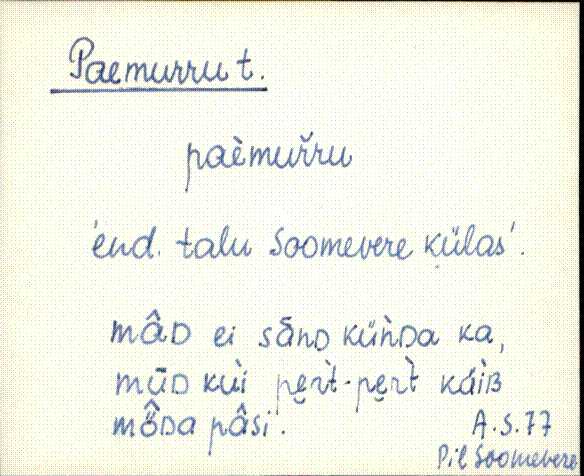 Paemurru t.
paèmur̆ru
'end. talu Soomevere külas'.
mâD ei sānD küǹDa ka,
mūD kui pe̮r̀t-pe̮r̀t káìB
mö̂Da pâsi.
A.S.77
Pil Soomevere